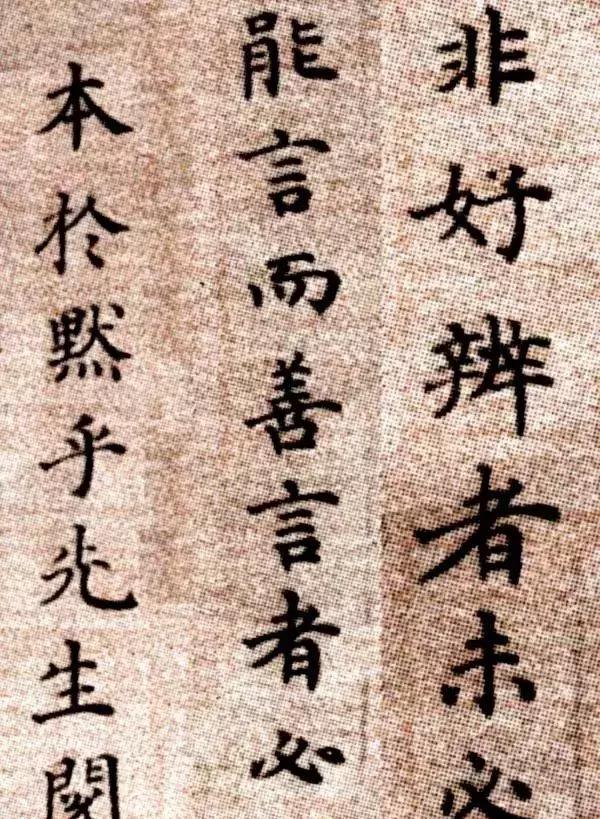 非好辨者未必
能言而善言者必
本於黙乎先生